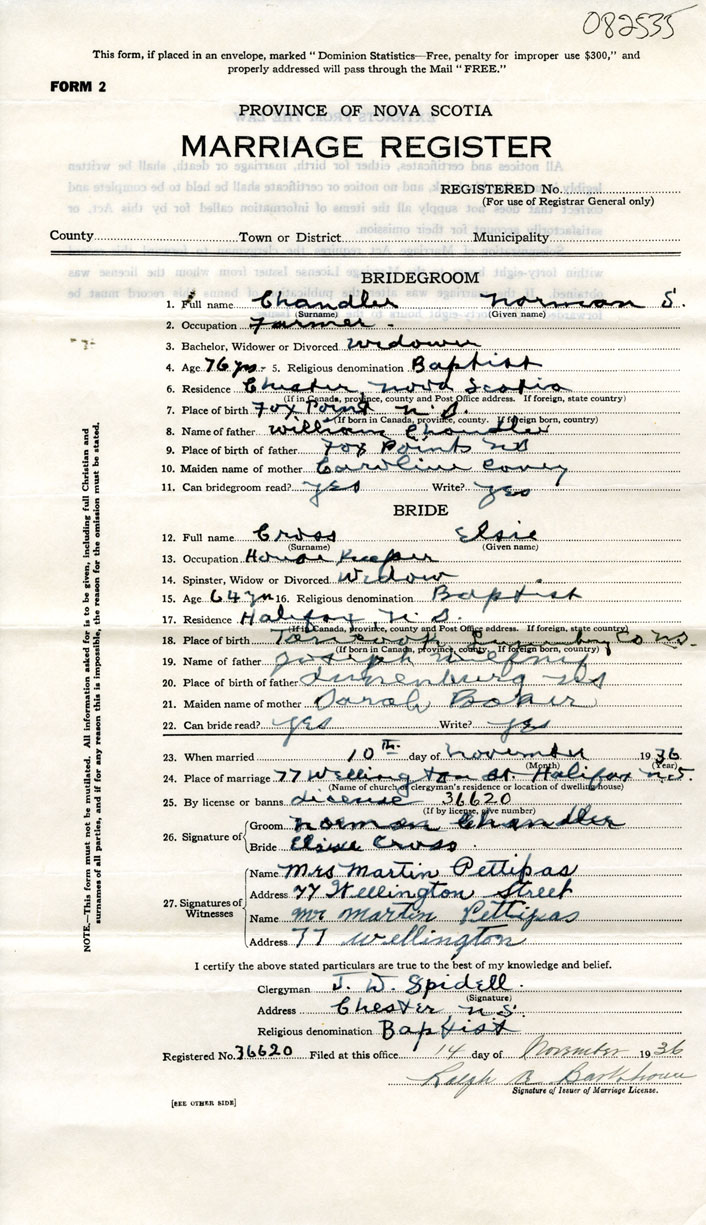 082535
This form, if placed in an envelope, marked "Dominion Statistics—Free, penalty for improper use $300," and
properly addressed will pass through the Mail "FREE."
FORM 2
PROVINCE OF NOVA SCOTIA
MARRIAGE REGISTER
REGISTERED No.
(For use of Registrar General only)
County Town or District Municipality
BRIDEGROOM
1. Full name Chandler Norman S.
(Surname) (Given name)
2. Occupation Farmer
3. Bachelor, Widower or Divorced Widower
4. Age 76 yrs 5. Religious denomination Baptist
6. Residence Chester Nova Scotia
(If in Canada, province, county and Post Office address. If foreign, state country)
7. Place of birth Fox Point N.S.
(If born in Canada, province, county. If foreign born, country)
8. Name of father William Chandler
9. Place of birth of father Fox Points NS
10. Maiden name of mother Caroline Covey
11. Can bridegroom read? yes Write? yes
BRIDE
12. Full name Cross Elsie
(Surname) (Given name)
13. Occupation House Keeper
14. Spinster, Widow or Divorced Widow
15. Age 64 yrs 16. Religious denomination Baptist
17. Residence Halifax N.S.
(If in Canada, province, county and Post Office address. If foreign, state country)
18. Place of birth Tancook Lunenburg Co NS.
(If born in Canada, province, county. If foreign born, country)
19. Name of father Joseph
20. Place of birth of father Lunenburg NS
21. Maiden name of mother Sarah Baker
22. Can bride read? yes Write? yes
23. When married 10th day of November 1936
(Month) (Year)
24. Place of marriage 77 Wellington St. Halifax N.S.
(Name of church or clergyman's residence or location of dwelling house)
25. By license or banns license 36620
(If by license, give number)
26. Signature of Groom Norman Chandler
Bride Elsie Cross
27. Signatures of Witnesses Name Mrs Martin Pettipas
Address 77 Wellington Street
Name Mr Martin Pettipas
Address 77 Wellington
I certify the above stated particulars are true to the best of my knowledge and belief.
Clergyman J. W. Spidell.
(Signature)
Address Chester N.S.
Religious denomination Baptist
Registered No. 36620 Filed at this office 14 day of November 1936
Ralph Barkhouse
Signature of Issuer of Marriage License.
[SEE OTHER SIDE]
NOTE.—This form must not be mutilated. All information asked for is to be given, including full Christian and
surnames of all parties, and if for any reason this is impossible, the reason for the omission must be stated.